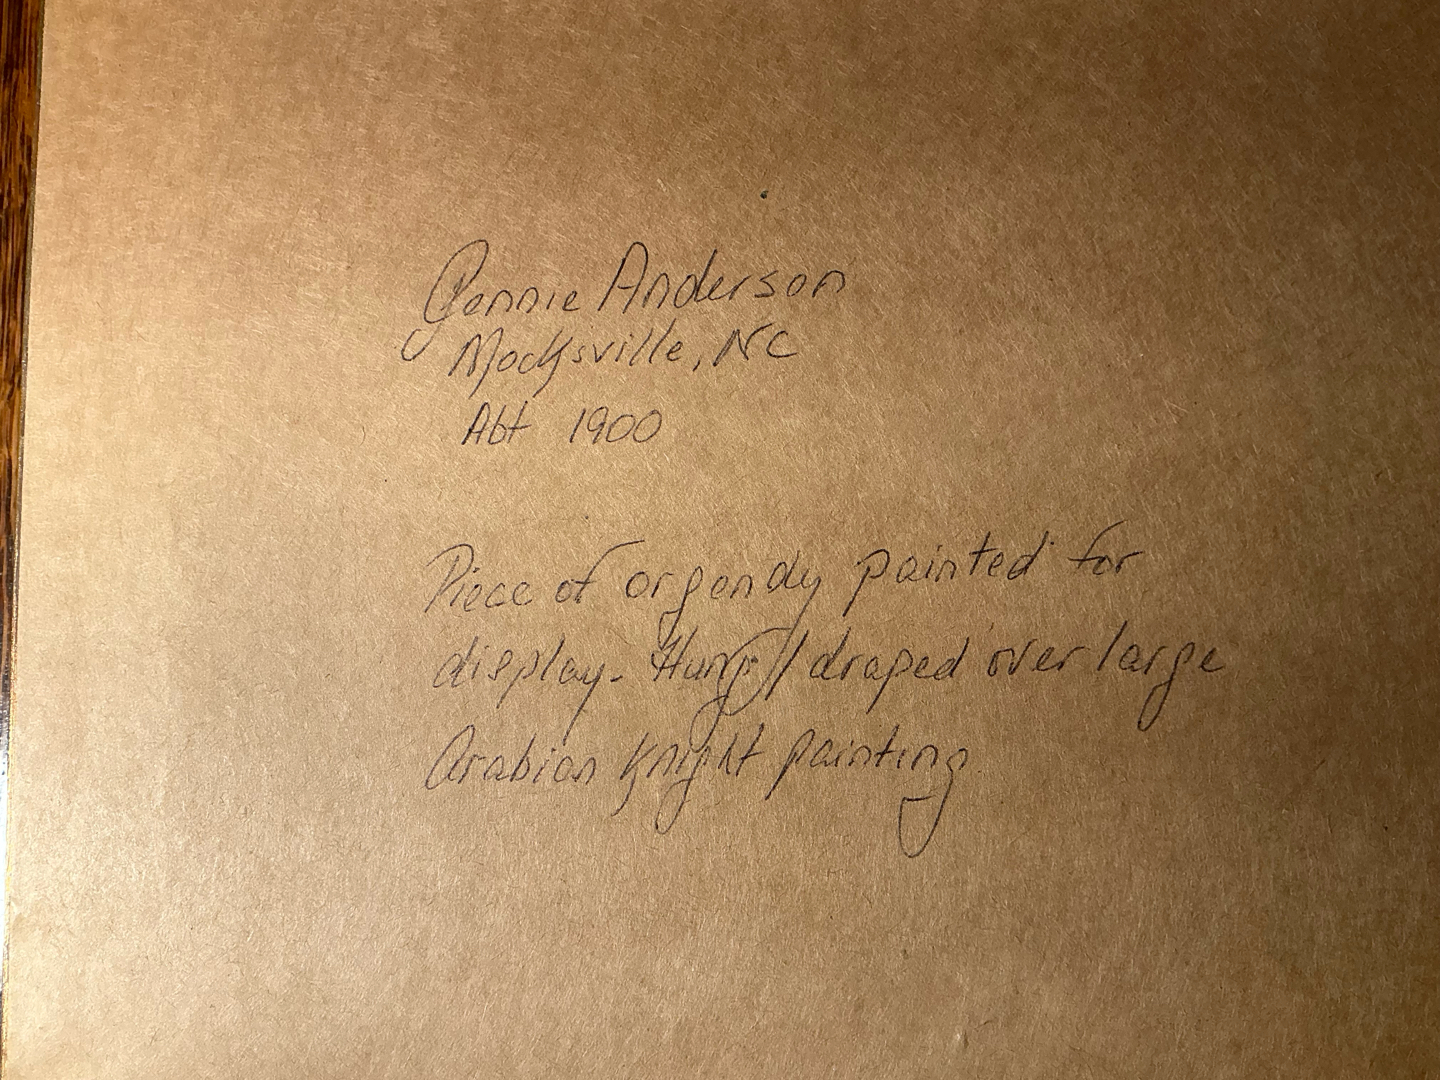 Jennie Anderson
Mocksville, NC
Abt 1900
Piece of organdy painted for
display. Hung// draped over large
Arabian Knight painting